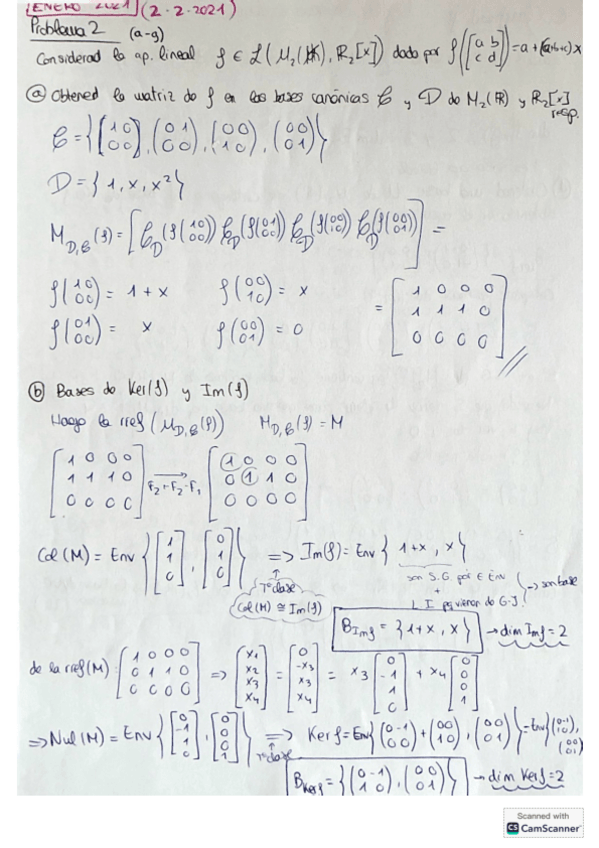 ENERO 2021 (2-2-2021)
Problema 2 (a-g)
Considerad la ap. lineal f ∈ L(M₂(ℝ), ℝ₂[x]) dado por f([a b; c d]) = a + (a+b+c)x
(a) Obtened la matriz de f en las bases canónicas C y D de M₂(ℝ) y ℝ₂[x] resp.
C = {[1 0; 0 0], (0 1; 0 0), (0 0; 1 0), (0 0; 0 1)}
D = {1, x, x²}
M_{D,C}(f) = [C_D(f(1 0; 0 0)) C_D(f(0 1; 0 0)) C_D(f(0 0; 1 0)) C_D(f(0 0; 0 1))] =
f(1 0; 0 0) = 1 + x f(0 0; 1 0) = x
f(0 1; 0 0) = x f(0 0; 0 1) = 0
= [1 0 0 0; 1 1 1 0; 0 0 0 0]
(b) Bases de Ker(f) y Im(f)
Hago la rref(M_{D,C}(f)) M_{D,C}(f) = M
[1 0 0 0; 1 1 1 0; 0 0 0 0] → F₂→F₂-F₁ [1 0 0 0; 0 1 1 0; 0 0 0 0]
Col(M) = Env {[1; 1; 0], [0; 1; 0]} => Im(f) = Env {1+x, x}
son S.G. por ∈ Env
+
L.I. pq vienen de G-J.
→ son base
Tª clase
Col(M) ≅ Im(f)
B_{Imf} = {1+x, x} → dim Imf = 2
de la rref(M): [1 0 0 0; 0 1 1 0; 0 0 0 0] => [x₁; x₂; x₃; x₄] = [0; -x₃; x₃; x₄] = x₃ [0; -1; 1; 0] + x₄ [0; 0; 0; 1]
=> Nul(M) = Env {[0; -1; 1; 0], [0; 0; 0; 1]} => Ker f = Env {(0 -1; 0 0) + (0 0; 1 0), (0 0; 0 1)} = Env {(0 -1; 1 0), (0 0; 0 1)}
Tª clase
B_{Kerf} = {(0 -1; 1 0), (0 0; 0 1)} → dim Kerf = 2
Scanned with
CS CamScanner